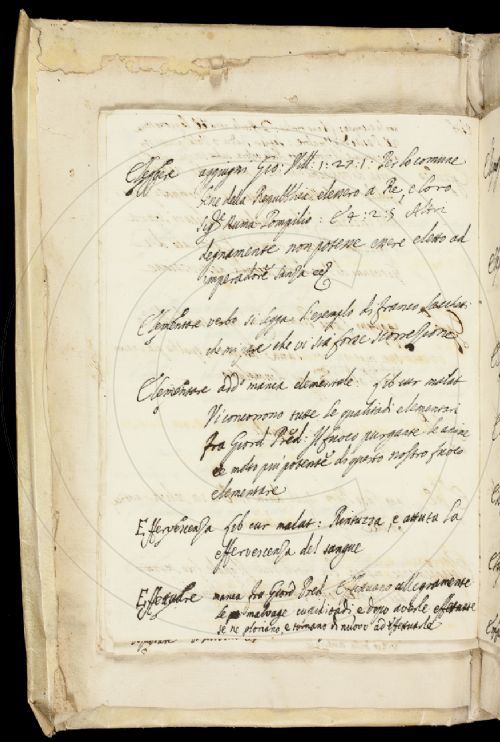 Eleggere aggiugni Gio: Vill: 1: 27: 1: Per lo comune
bene della Republica elessero a Re e loro
Sig.re Numa Pompilio: E 4: 2: 3 Altri
degnamente non potesse essere eletto ad
imperadore sanza
Elementare verbo si agga l'esempio di Franco Sacchet:
che mi pare che vi sia forse scorrezione
Elementare add: manca elementale. lib cur malat
Vi concorrono tutte le qualitadi elementari
fra Giord Pred: Il fuoco purgante le anime
è molto piu potente di questo nostro fuoco
elementare
Effervescenza lib cur malat: Rintuzza, e attuta la
effervescenza del sangue
Effettuare manca fra Giord Pred: Effettuano allegramente
le malvage cupiditadi e dopo averle effettuate
se ne gloriano, e tornano di nuovo ad effettuarle